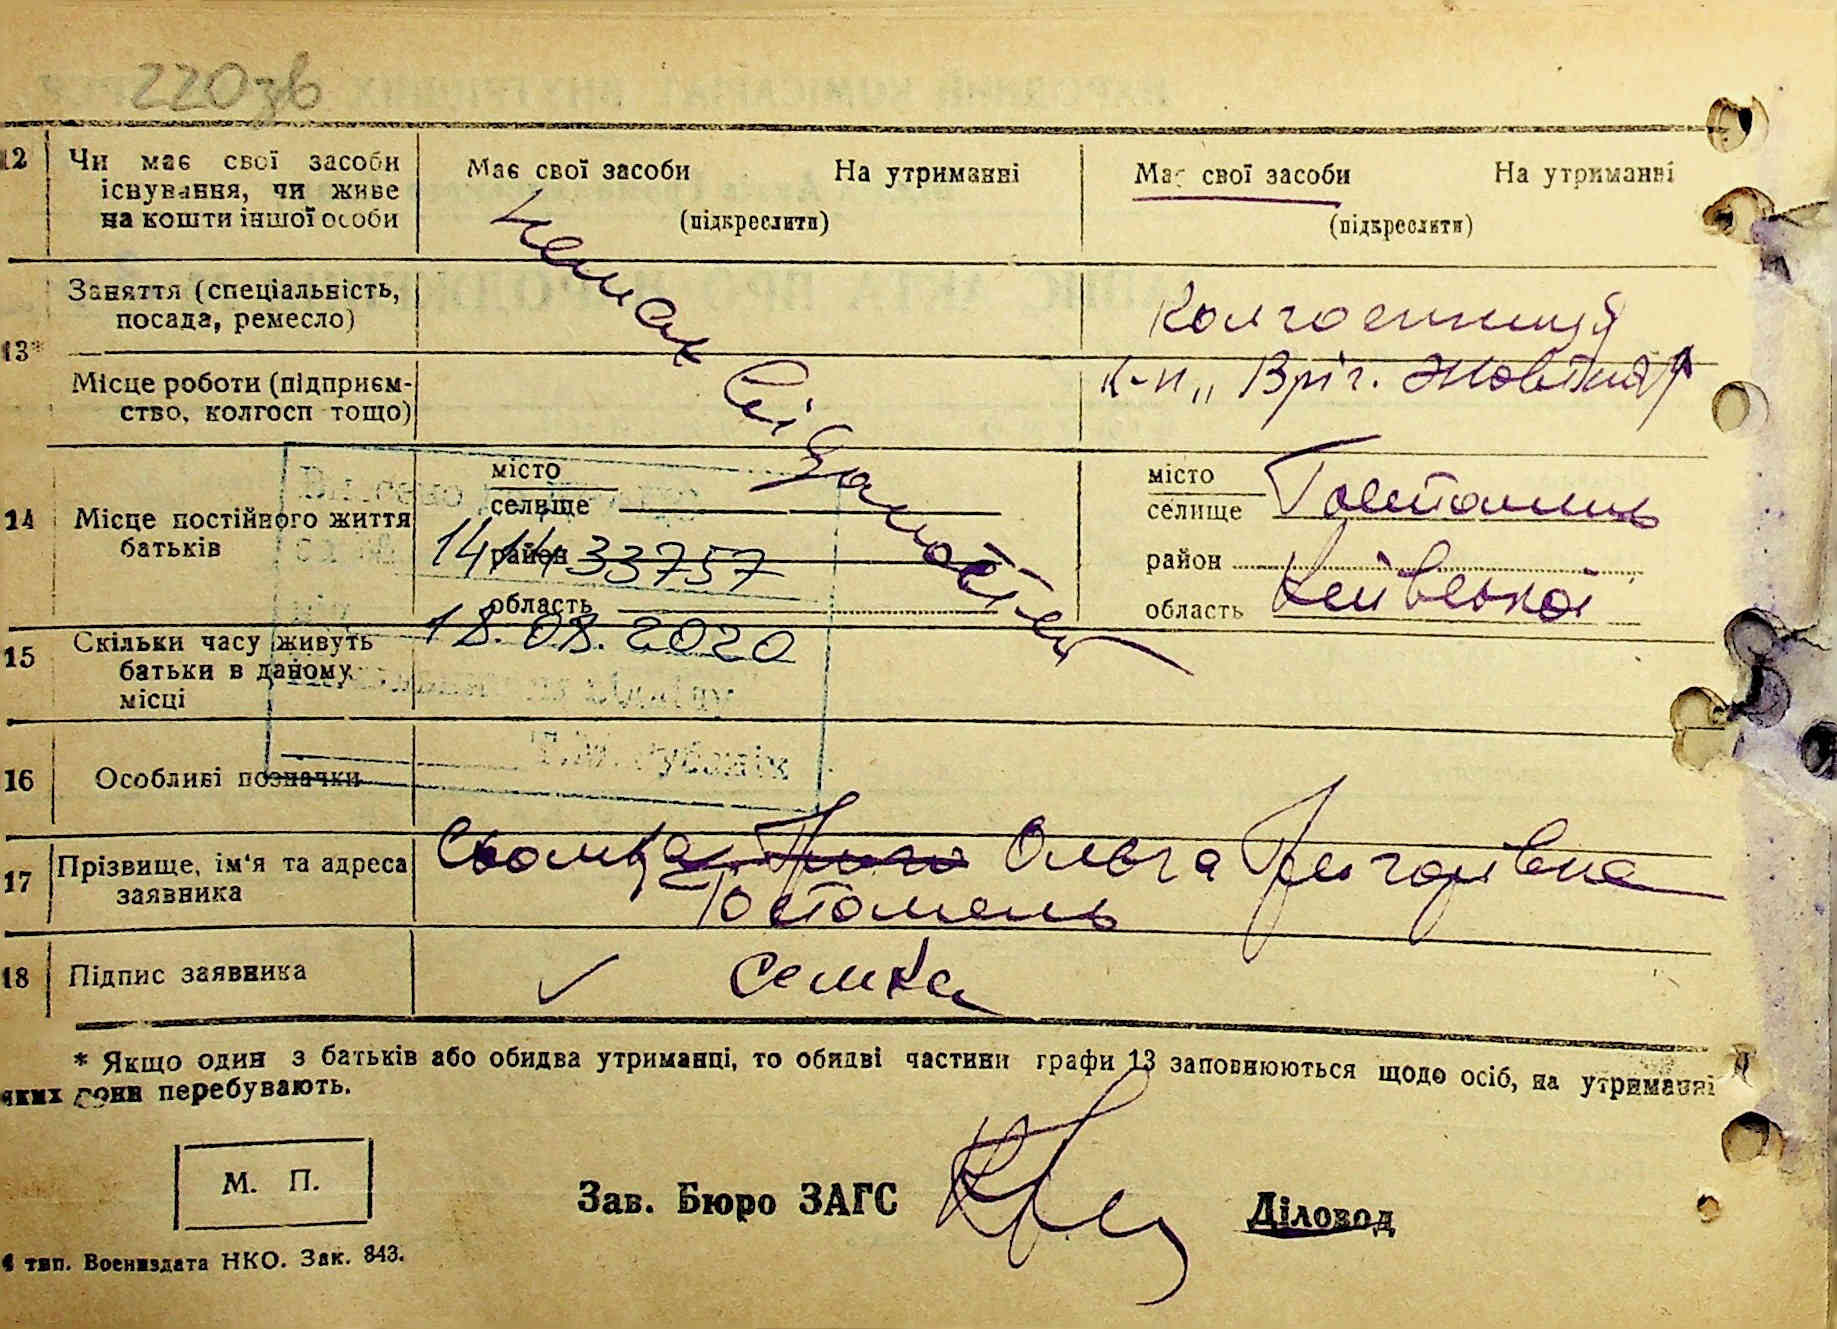 220зв
12 Чи має свої засоби існування, чи живе на кошти іншої особи
Має свої засоби На утриманні
(підкреслити)
Має свої засоби На утриманні
(підкреслити)
немає
13*
Заняття (спеціальність, посада, ремесло)
Колгоспниця
Місце роботи (підприємство, колгосп тощо)
к-п „ Вріч. Жовтня"
14 Місце постійного життя батьків
місто
селище
район
область
місто
селище Гостомель
район
область Київської
1414 33757
18.08.2020
15 Скільки часу живуть батьки в даному місці
16 Особливі позначки
17 Прізвище, ім'я та адреса заявника
Сьомка Ольга Григорівна
Гостомель
18 Підпис заявника
✓ Семка
* Якщо один з батьків або обидва утриманці, то обидві частини графи 13 заповнюються щодо осіб, на утриманні
яких вони перебувають.
М. П.
Зав. Бюро ЗАГС
Діловод
4 тип. Воениздата НКО. Зак. 843.